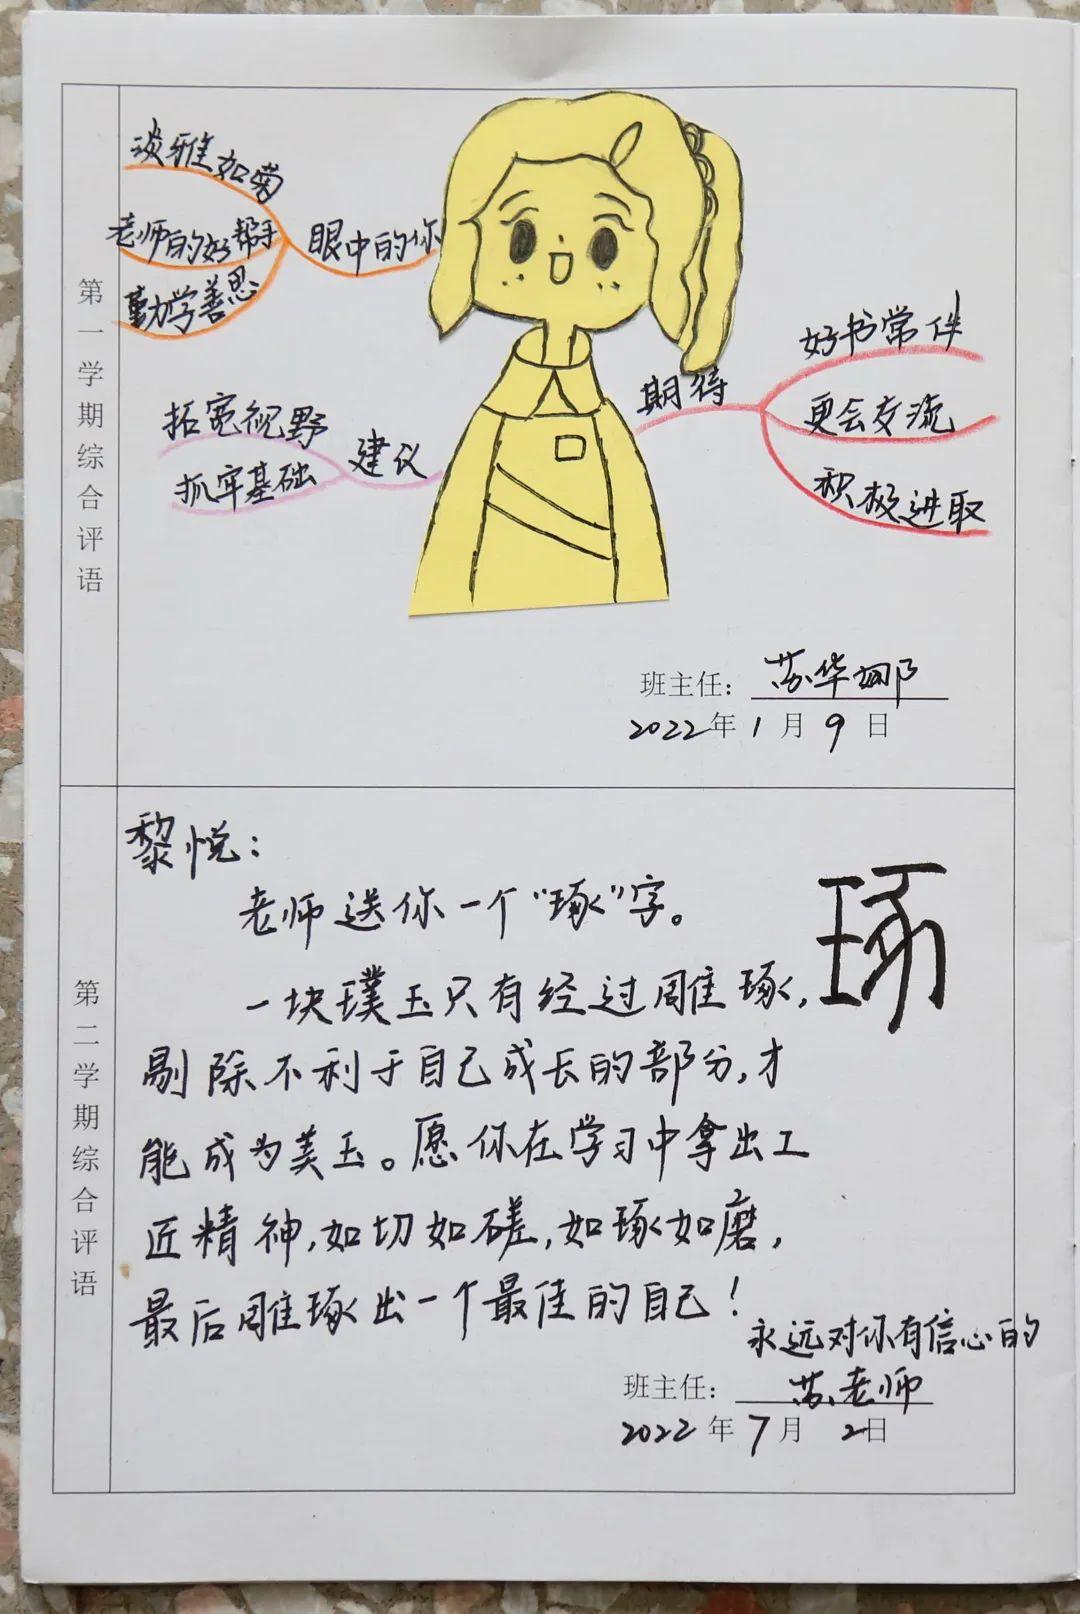 第一学期综合评语
淡雅如菊
老师的好帮手
勤学善思
眼中的你
拓宽视野
抓牢基础
建议
期待
好书常伴
更会交流
积极进取
班主任：苏华娜
2022年1月9日
第二学期综合评语
黎悦：
老师送你一个“琢”字。
琢
一块璞玉只有经过雕琢，
剔除不利于自己成长的部分，才
能成为美玉。愿你在学习中拿出工
匠精神，如切如磋，如琢如磨，
最后雕琢出一个最佳的自己！
永远对你有信心的
班主任：苏老师
2022年7月2日